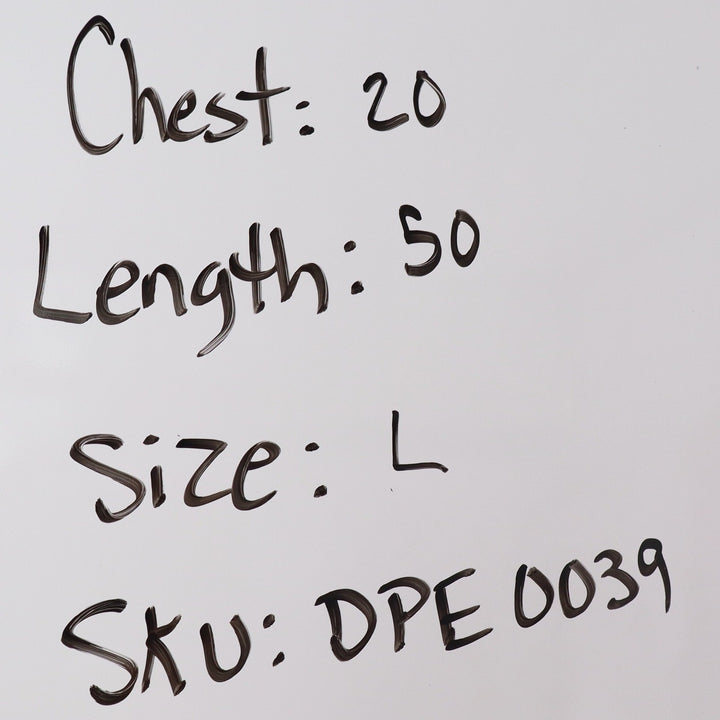 Chest: 20
Length: 50
Size: L
Sku: DPE 0039